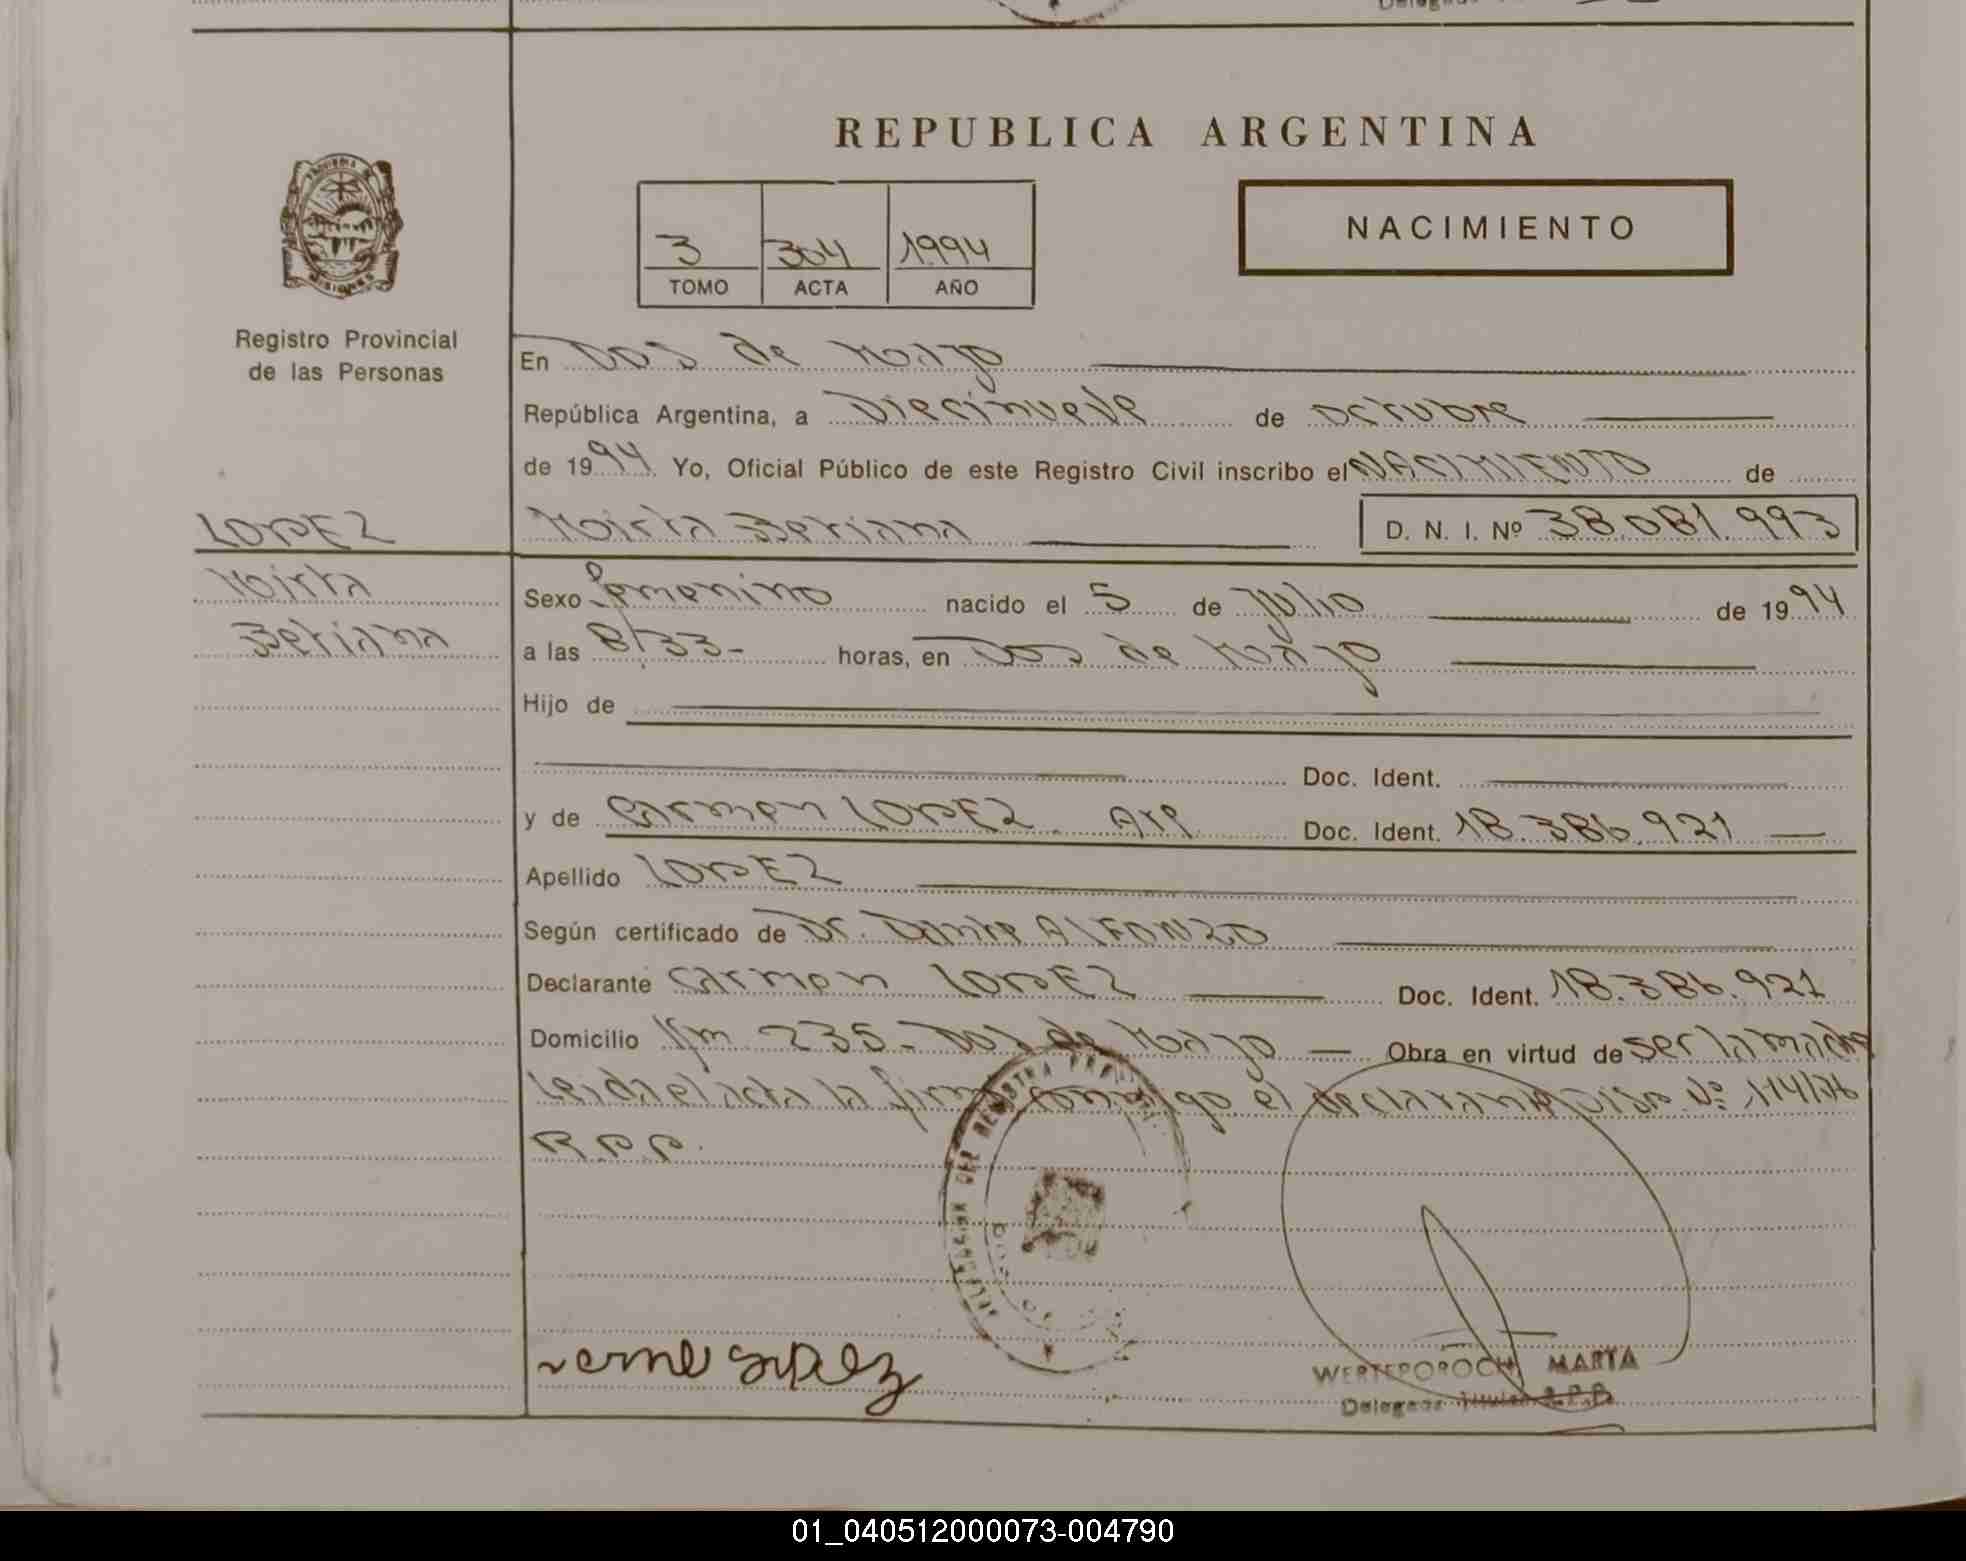 REPUBLICA ARGENTINA
3 304 1994
TOMO ACTA AÑO
NACIMIENTO
Registro Provincial
de las Personas
En Dos de Mayo
República Argentina, a Diecinueve de octubre
de 1994 Yo, Oficial Público de este Registro Civil inscribo el NACIMIENTO de
LOPEZ
Mirta
Beriana
Mirta Beriana D. N. I. Nº 38.081.993
Sexo femenino nacido el 5 de julio de 1994
a las 8/33- horas, en Dos de Mayo
Hijo de
Doc. Ident.
y de Carmen LOPEZ Arg Doc. Ident. 18.386.921
Apellido LOPEZ
Según certificado de Dr. Dante ALFONZO
Declarante Carmen LOPEZ Doc. Ident. 18.386.921
Domicilio Km 235- Dos de Mayo Obra en virtud de ser la madre
Leida el acta la firma conmigo el declarante Disp. Nº 114/76
R.P.P.
DEL REGISTRO
WERTEPOROCH MARTA
Delegada Titular R.P.P.
01_040512000073-004790